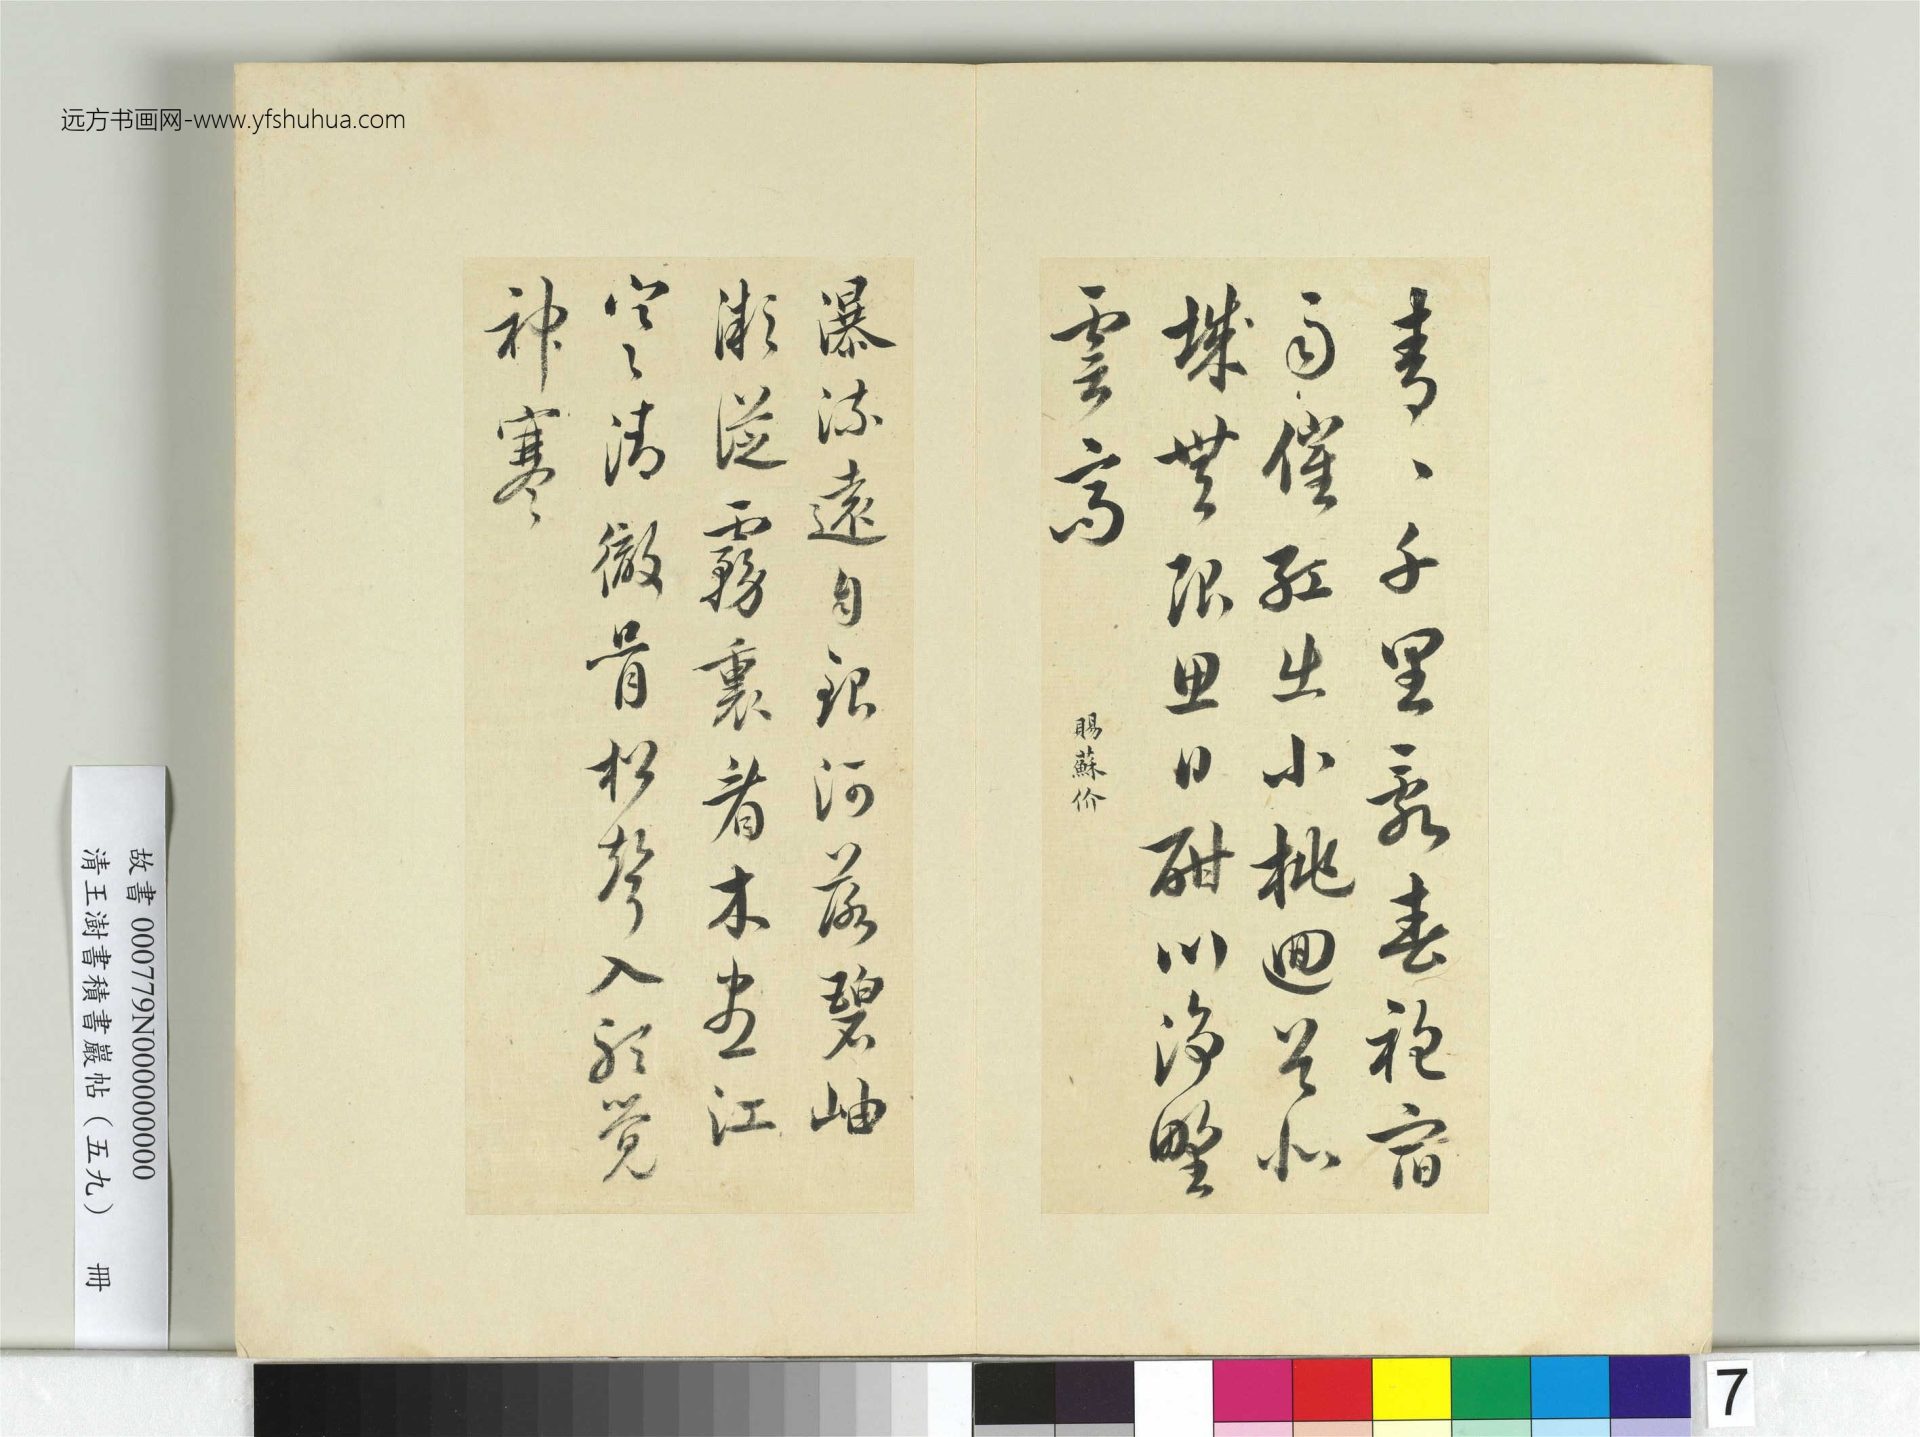 远方书画网-www.yfshuhua.com
青丶千里亂春袍宿
雨催紅出小桃迴首北
城無限思日酣川淨野
雲高
賜蘇价
瀑流遠自銀河落碧岫
漸從霧裏看木盡江
空清徹骨松聲入聽覺
神寒
故書 000779N000000000
清王澍書積書巖帖(五九) 冊
7